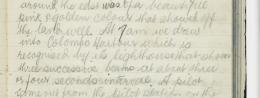 around the edges was of a beautiful
pink & golden colour that showed off
the land well. At 7 am we drew
into Colombo Harbour which is
recognised by its lighthouse that shows
three successive beams at about three
or four seconds interval. A pilot
came out from the pilot station on the